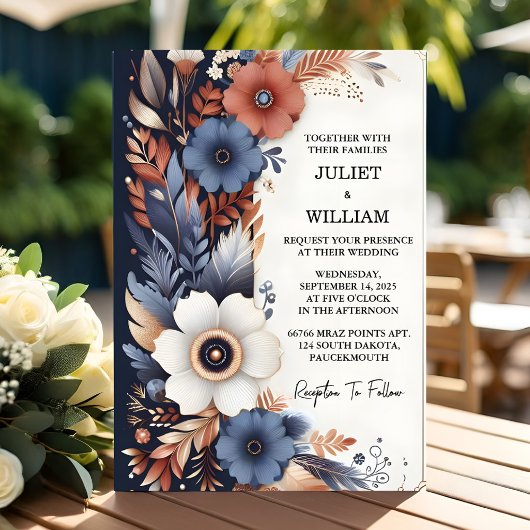 TOGETHER WITH
THEIR FAMILIES
JULIET
&
WILLIAM
REQUEST YOUR PRESENCE
AT THEIR WEDDING
WEDNESDAY,
SEPTEMBER 14, 2025
AT FIVE O'CLOCK
IN THE AFTERNOON
66766 MRAZ POINTS APT.
124 SOUTH DAKOTA,
PAUCEKMOUTH
Reception To Follow